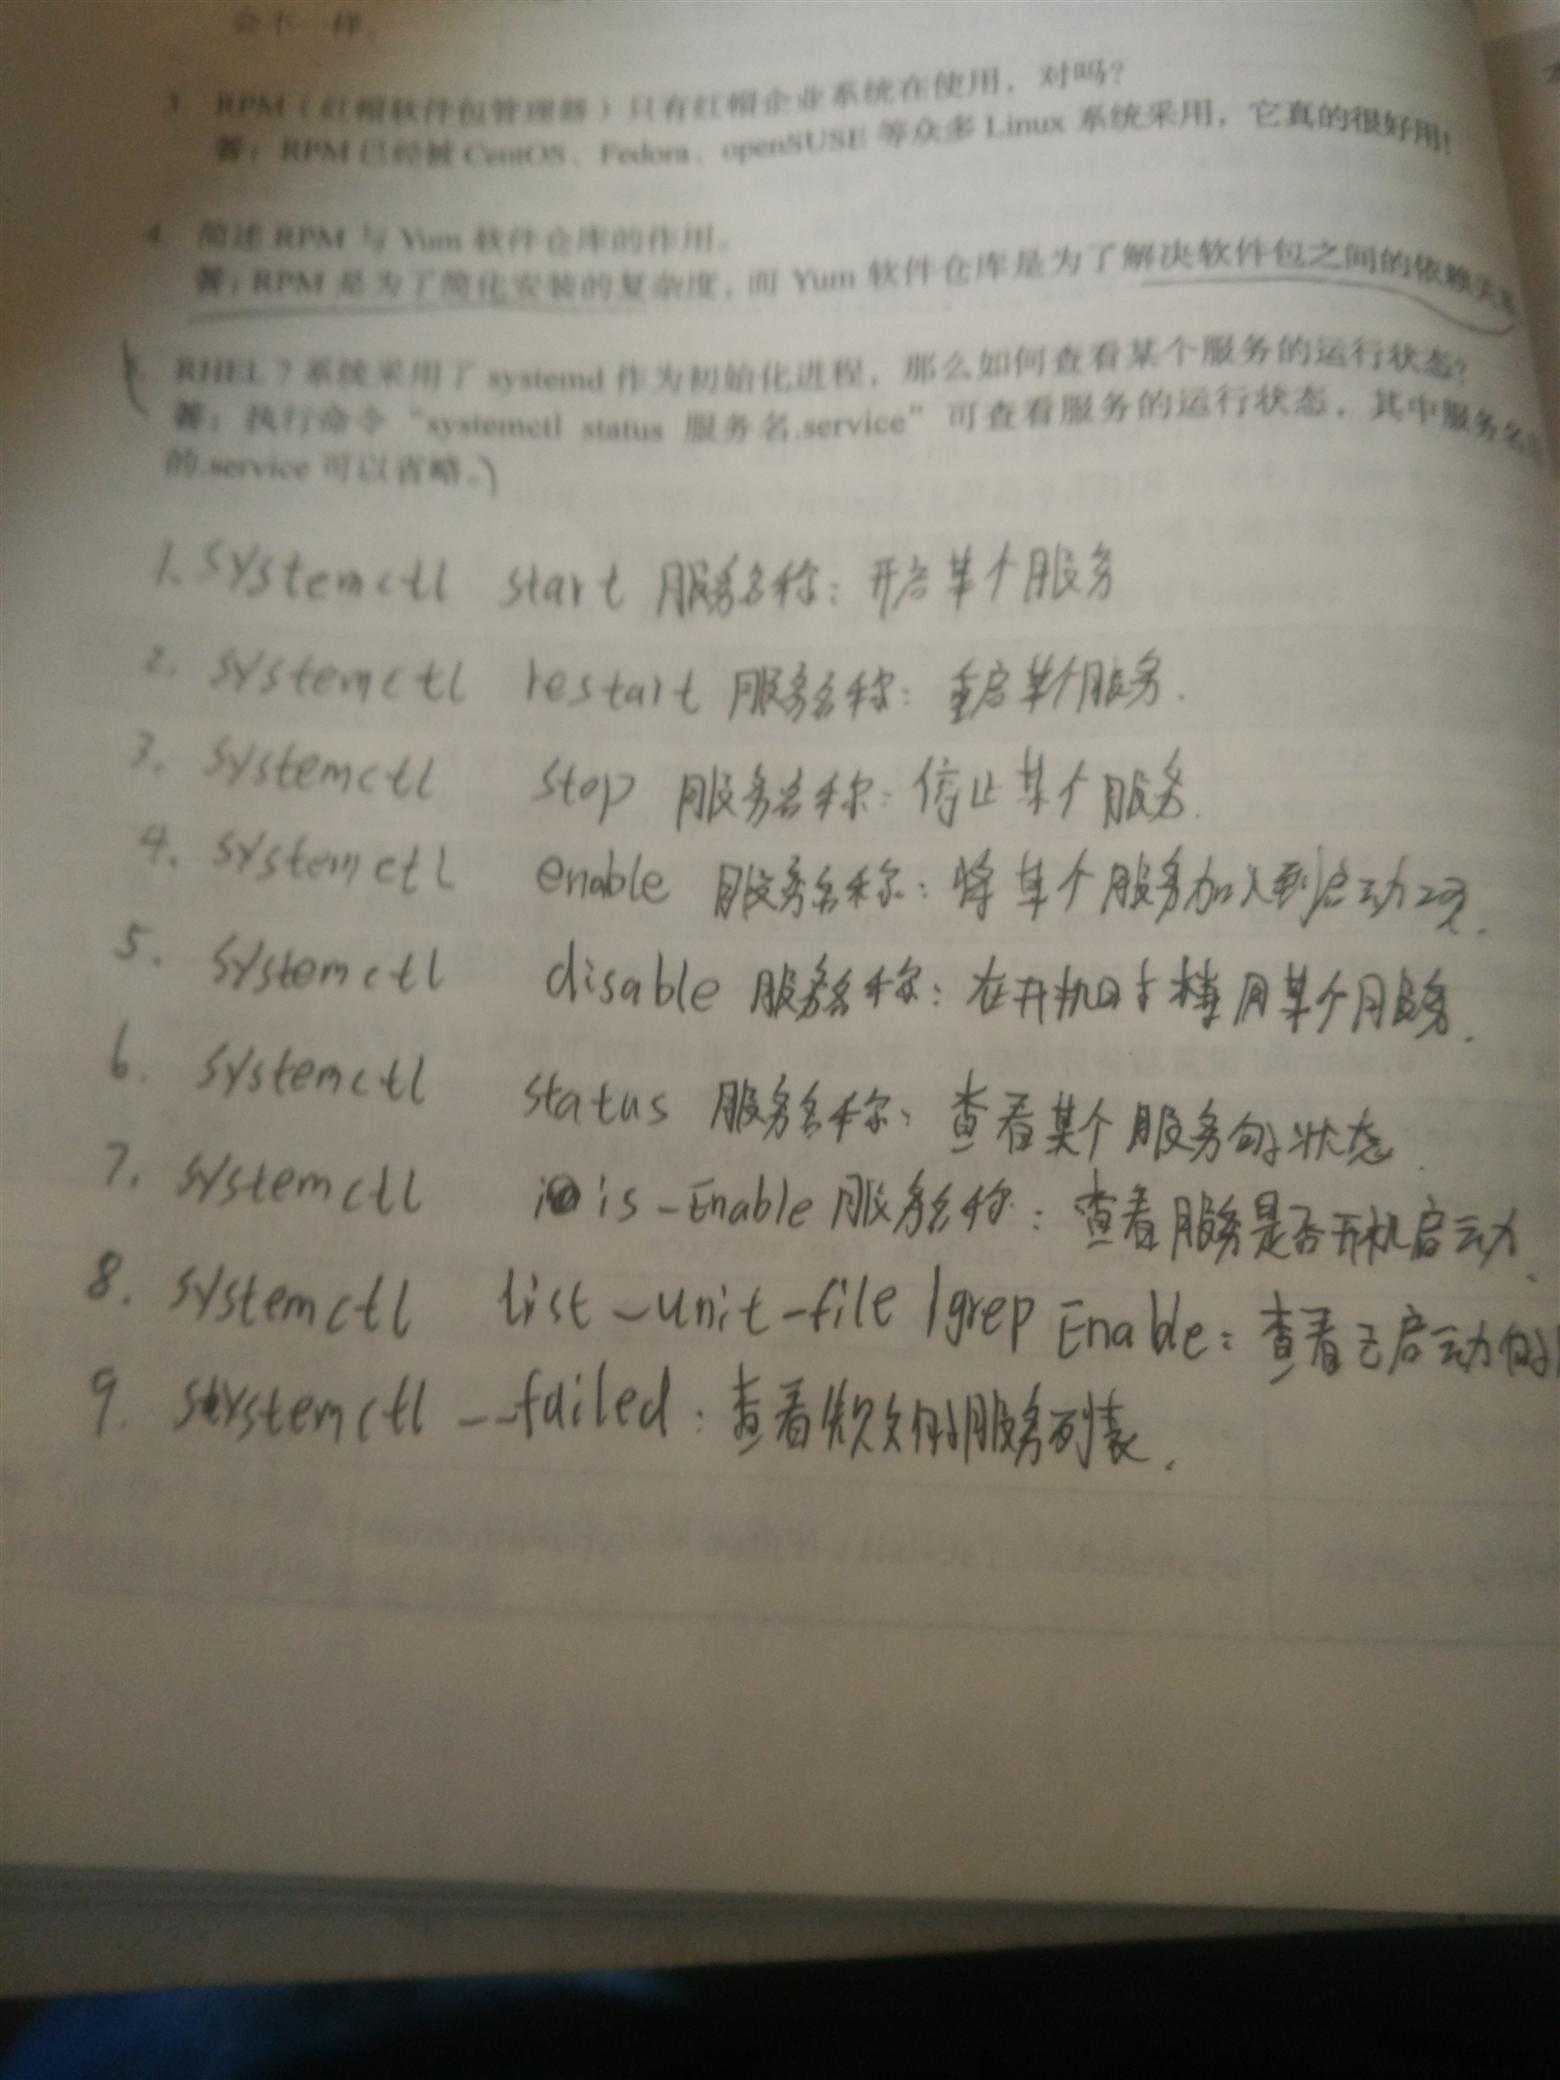 会不一样。
3. RPM（红帽软件包管理器）只有红帽企业系统在使用，对吗？
答：RPM 已经被 CentOS、Fedora、openSUSE 等众多 Linux 系统采用，它真的很好用！
4. 简述 RPM 与 Yum 软件仓库的作用。
答：RPM 是为了简化安装的复杂度，而 Yum 软件仓库是为了解决软件包之间的依赖关系
RHEL 7 系统采用了 systemd 作为初始化进程，那么如何查看某个服务的运行状态？
答：执行命令“systemctl status 服务名.service”可查看服务的运行状态，其中服务名
的.service 可以省略。)
1. systemctl start 服务名称：开启某个服务
2. systemctl restart 服务名称：重启某个服务.
3. systemctl stop 服务名称：停止某个服务.
4. systemctl enable 服务名称：将某个服务加入到启动项.
5. systemctl disable 服务名称：在开机时禁用某个服务.
6. systemctl status 服务名称：查看某个服务的状态.
7. systemctl is-Enable 服务名称：查看服务是否开机启动.
8. systemctl list-unit-file |grep Enable：查看已启动的
9. systemctl --failed：查看失败的服务列表.